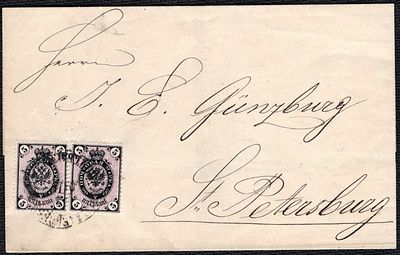 Herrn
J. E. Günzburg
St. Petersburg
5 5 5 5